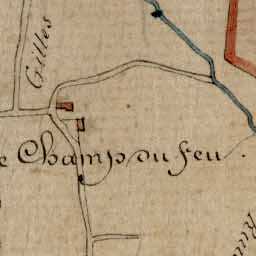 Gilles
e Champ du feu.